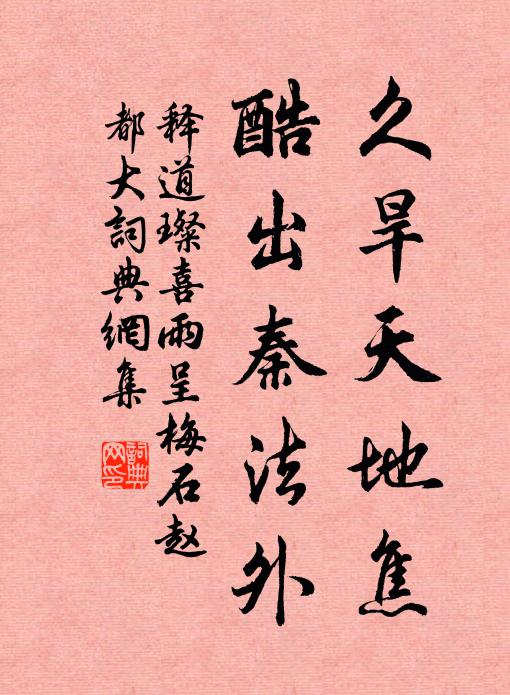 久旱天地焦
酷出秦法外
释道璨喜雨呈梅石赵
都大詞典網集
詞典網印